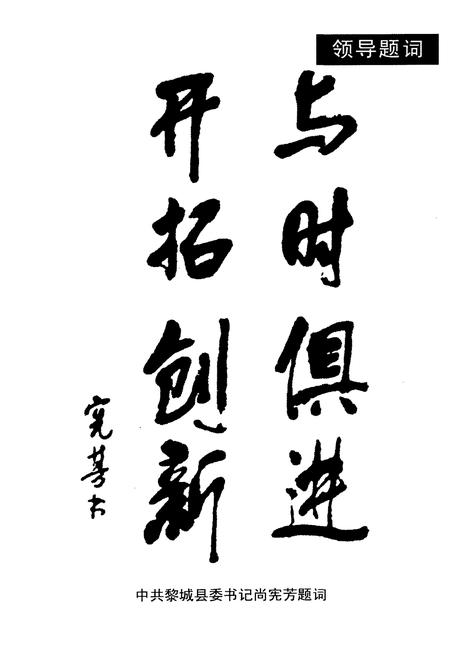 领导题词
与时俱进
开拓创新
宪芳书
中共黎城县委书记尚宪芳题词